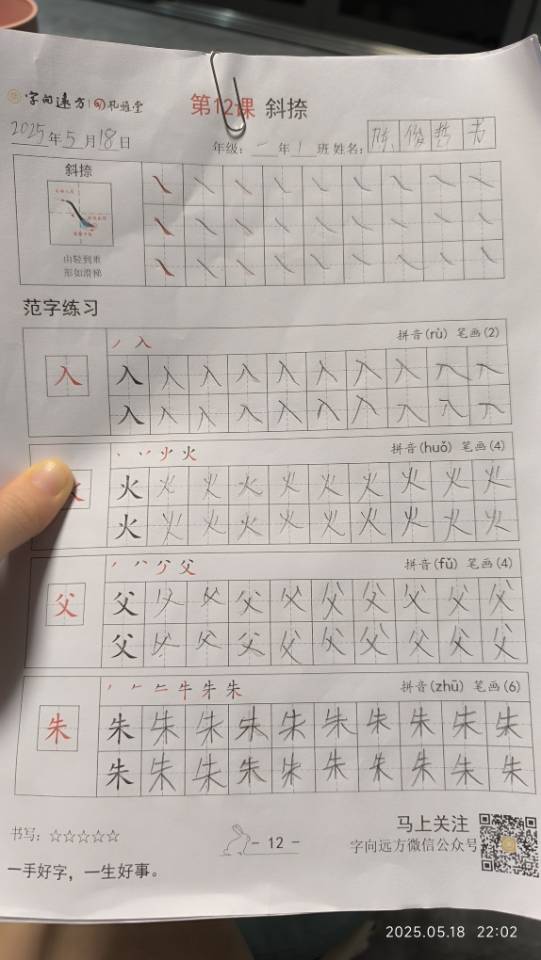 字向远方 礼雅堂 第12课 斜捺
2025年5月18日 年级：一年1班 姓名：陈俊哲书
斜捺
由轻到重
形如滑梯
范字练习
丿 入 拼音(rù) 笔画(2)
入 入 入 入 入 入 入 入 入 入 入
入 入 入 入 入 入 入 入 入 入
火 火 拼音(huǒ) 笔画(4)
火 火 火 火 火 火 火 火 火 火
火 火 火 火 火 火 火 火 火 火
父 拼音(fǔ) 笔画(4)
父 父 父 父 父 父 父 父 父 父 父
父 父 父 父 父 父 父 父 父 父
牛 朱 朱 拼音(zhū) 笔画(6)
朱 朱 朱 朱 朱 朱 朱 朱 朱 朱 朱
朱 朱 朱 朱 朱 朱 朱 朱 朱 朱
书写：☆☆☆☆☆ - 12 - 马上关注
字向远方微信公众号
一手好字，一生好事。
2025.05.18 22:02